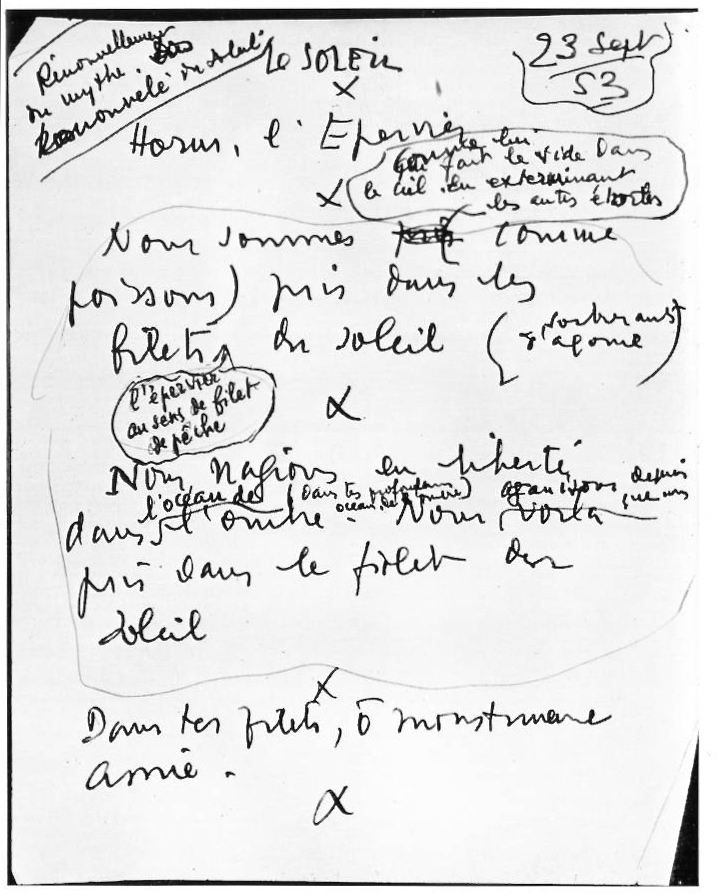 Renouvellement
du mythe
Renouvelé du soleil
Le SOLEIL
23 Sept
53
X
Horus, l'Épervier
Comme lui
qui fait le vide dans
le ciel en exterminant
les autres étoiles
X
Nous sommes pris comme
poissons) pris dans les
filets du soleil (
d'agonie )
l'épervier
au sens de filet
de pêche
X
Nous nagions en liberté
l'océan de (Dans tes profondeurs
océan de l'ombre)
agonisons depuis
que nous
dans l'ombre. Nous voilà
pris dans le filet du
soleil
X
Dans tes filets, ô monstrueuse
amie.
X